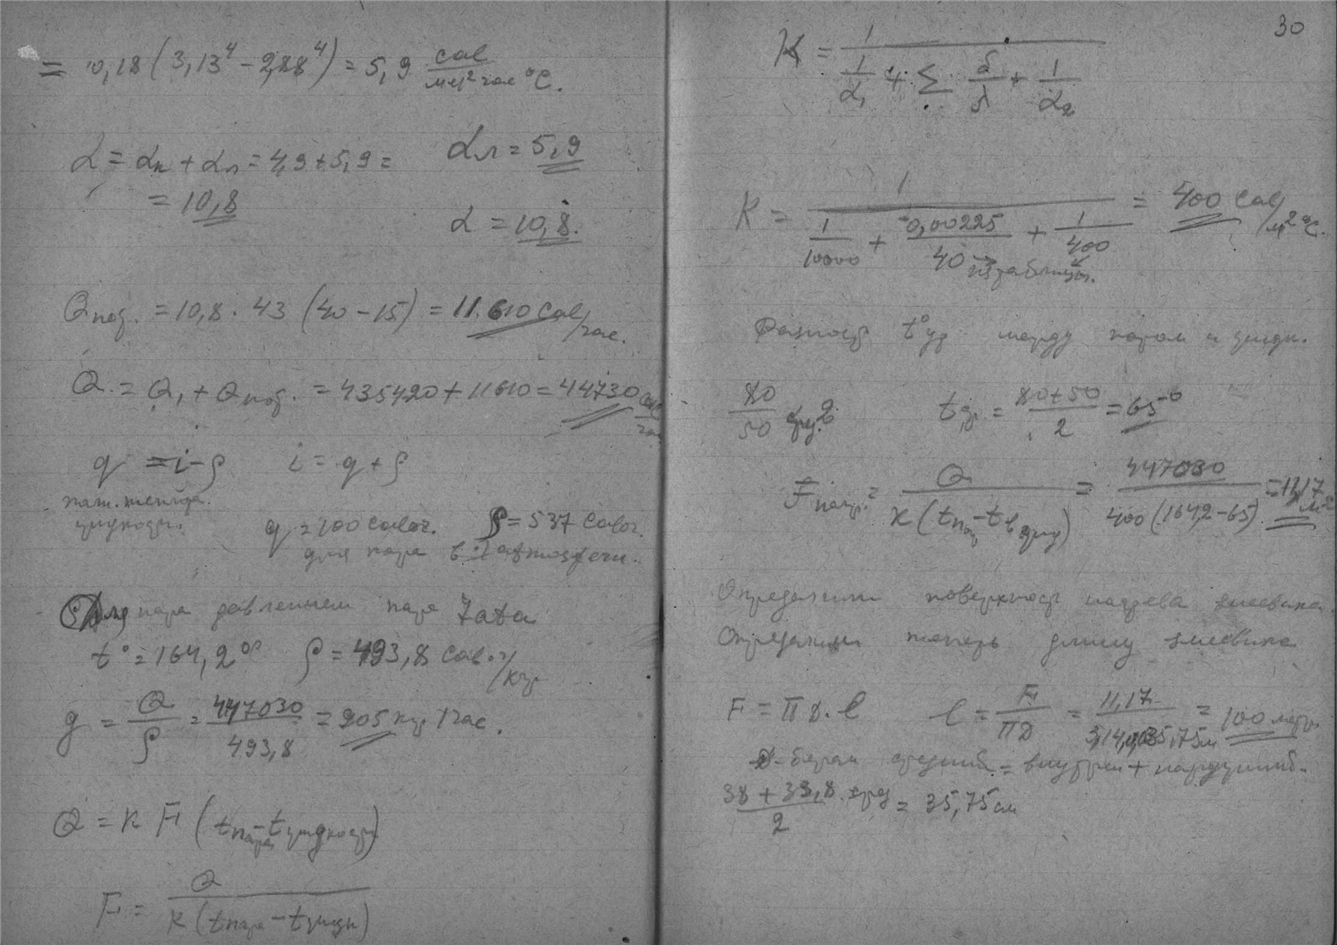 = 0,18 (3,13⁴ - 2,88⁴) = 5,9 cal / м² час °C.
α = αк + αл = 4,9 + 5,9 =
= 10,8
αл = 5,9
α = 10,8.
Qпоб. = 10,8 · 43 (40 - 15) = 11.610 Cal/час.
Q = Q₁ + Qпоб. = 435420 + 11610 = 44730 cal/час
q = i - ρ   i = q + ρ
жидкости.
q = 100 calor.   ρ = 537 calor.
для пара в 1 атмосферу.
Для пара давлением пара 7 ата
t° = 164,2°   ρ = 493,8 cal./кгр
g = Q/ρ = 447030/493,8 = 905 кгр/час.
Q = K F (tпара - tжидкости)
F = Q / K (tпара - tжидк)
30
K = 1 / (1/α₁ + Σ δ/λ + 1/α₂)
K = 1 / (1/10000 + 0,00225/40 + 1/400) = 400 cal/м² °C.
из таблицы.
Разность t° между паром и жидк.
80/50   tср. = (80 + 50)/2 = 65°
Fнагр. = Q / K (tпар - tжид) = 447030 / 400 (164,2 - 65) = 11,17 м²
Определили поверхность нагрева змеевика
Определим теперь длину змеевика
F = П D. l   l = F/ПD = 11,17 / 3,14 · 0,03575 м = 100 метр.
D - берем средний = внутрен + наружний.
(38 + 33,8)/2 = 35,75 см